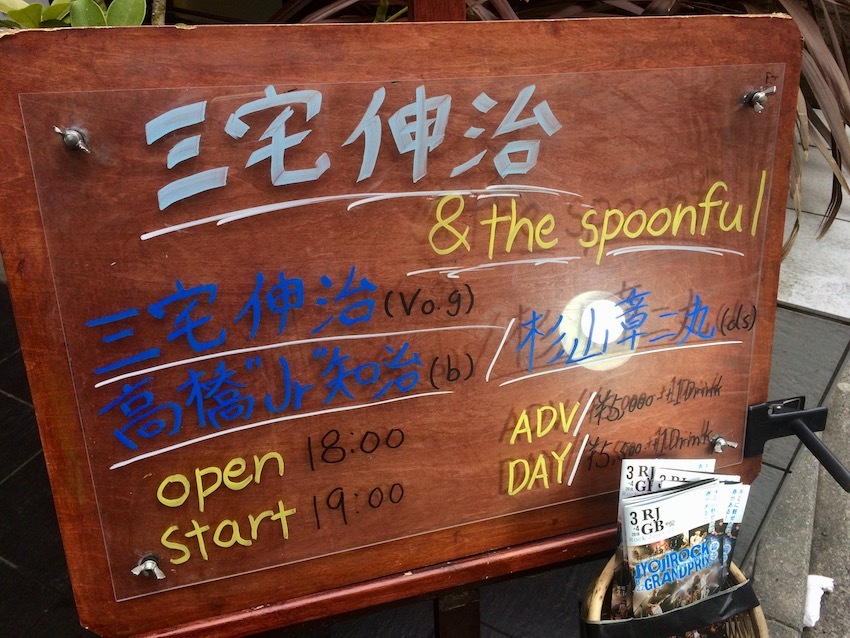 三宅伸治
& the spoonful
三宅伸治(Vo.g)
高橋"Jr"知治(b)/杉山章二丸(ds)
open 18:00
start 19:00
ADV/¥5,000+1Drink
DAY/¥5,500+1Drink
3 RJ
GB
3 RJ
GB
JYOJIROCK
GRANDPRIX